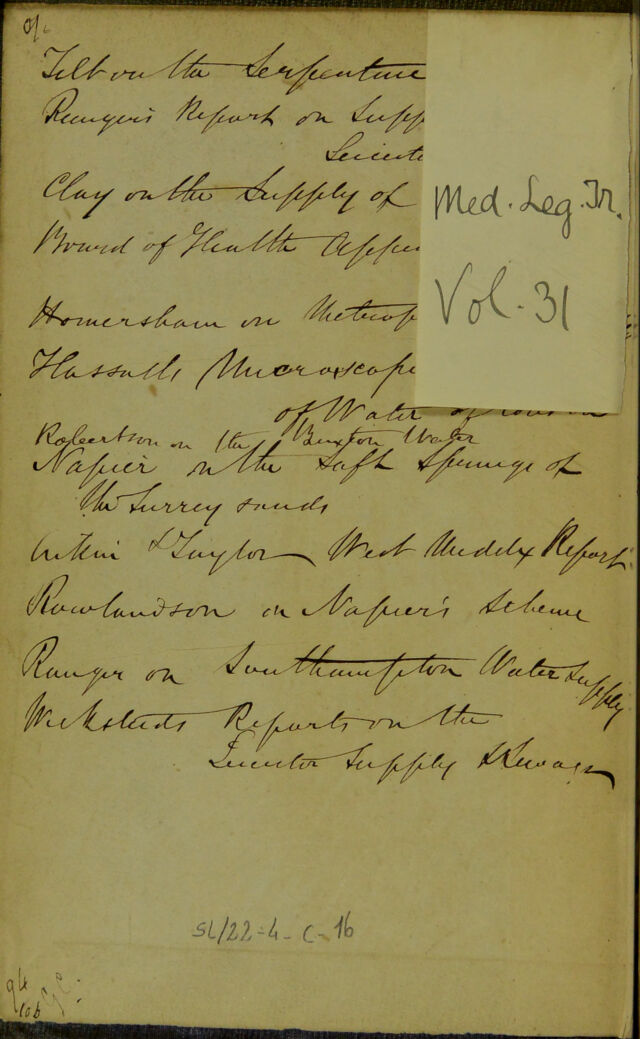 Tilt on the Serpentine
Ranger's Report on Supp
Leiceste
Clay on the Supply of
Board of Health Appen
Homersham on Metrop
Hassall's Microscopi
of Water of
Robertson on the Buxton Water
Napier on the Soft Springs of
the Surrey sands
& Taylor West Middx Report
Rowlandson on Napier's Scheme
Ranger on Southampton Water Supply
Wicksteeds Reports on the
Leicester Supply & Sewage
Med. Leg. Tr.
Vol. 31
SL/22-4-C-16
94